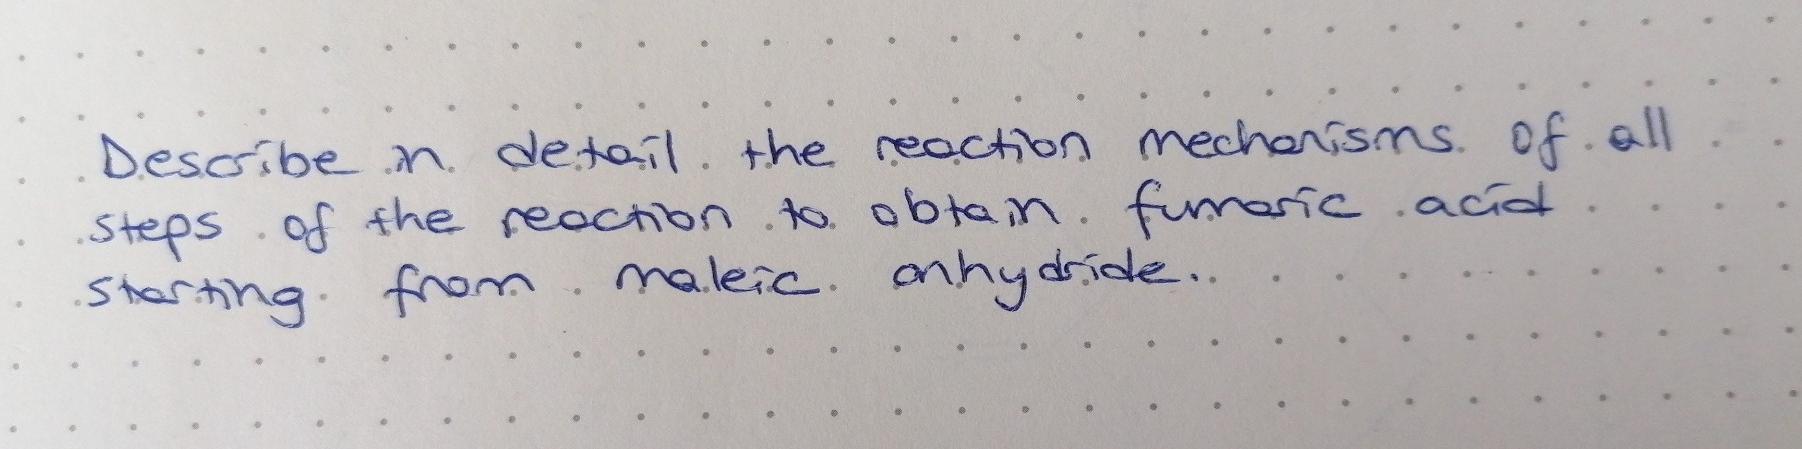 Describe in detail the reaction mechanisms of all
steps of the reaction to obtain fumaric acid
starting from maleic anhydride.